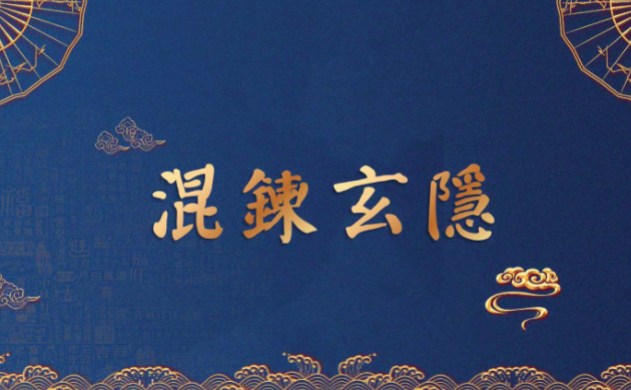 混鍊玄隱